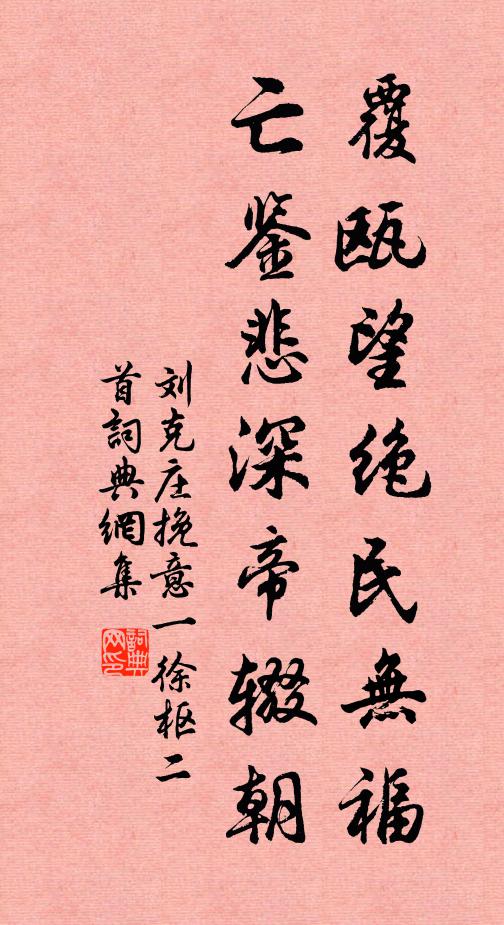 覆瓯望绝民無福
亡鉴悲深帝辍朝
刘克庄挽意一徐枢二
首詞典網集
詞典网印